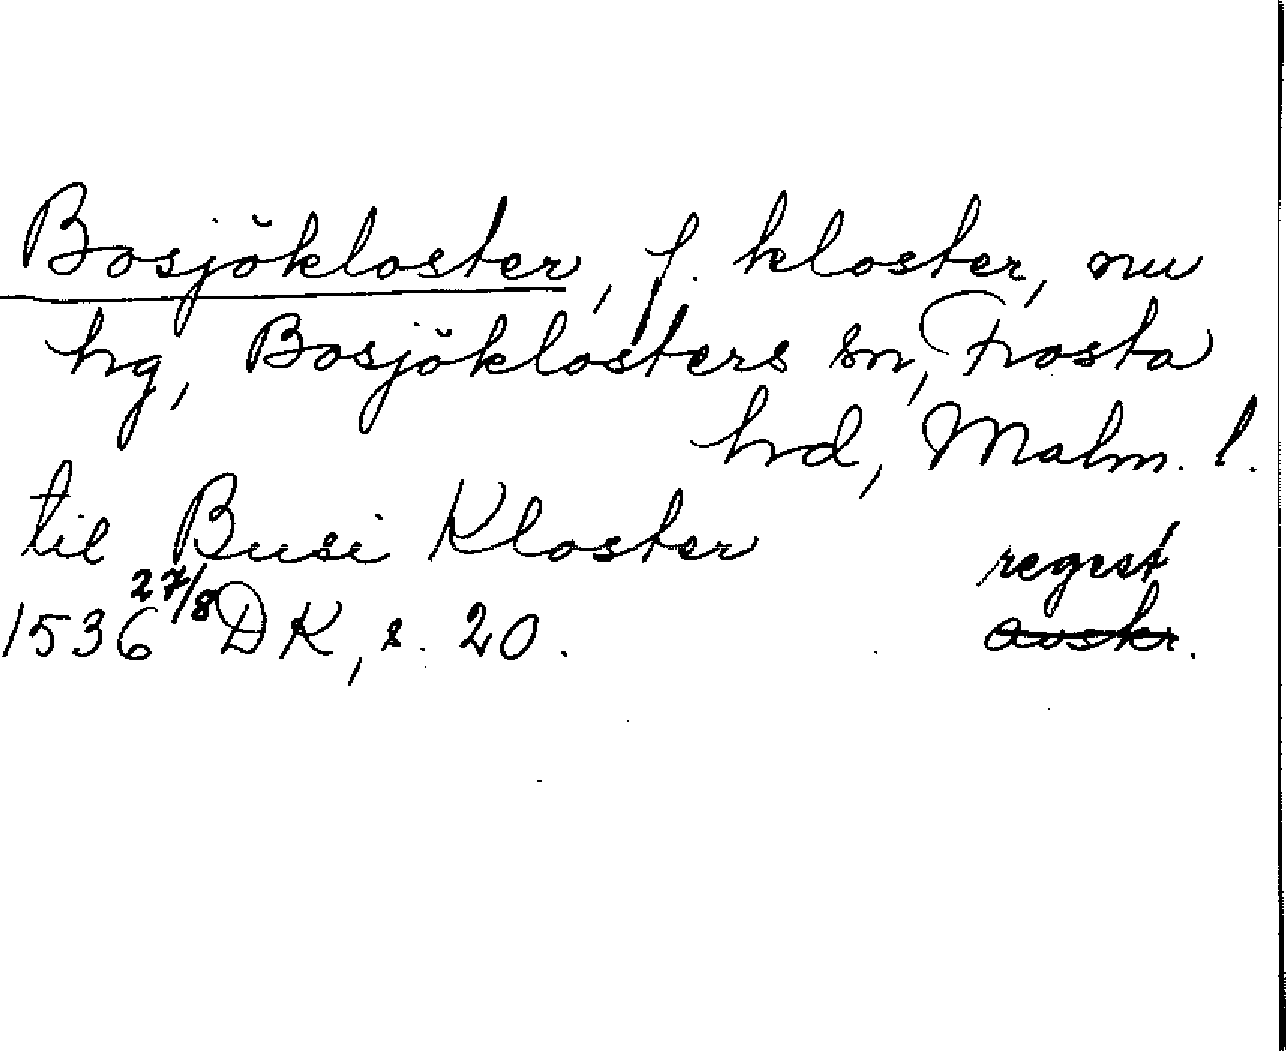 Bosjökloster, f. kloster, nu
hg, Bosjöklosters sn, Frosta
hd, Malm. l.
til Busi Kloster regest
1536 27/8 DK, s. 20. avskr.